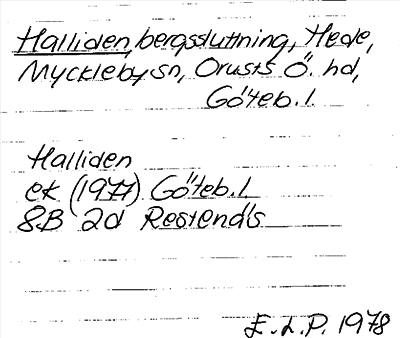 Halliden, bergssluttning, Hede,
Myckleby sn, Orusts Ö. hd,
Göteb. l.
Halliden
ek (1977) Göteb. l.
8B 2d Restenäs
E. L. P. 1978